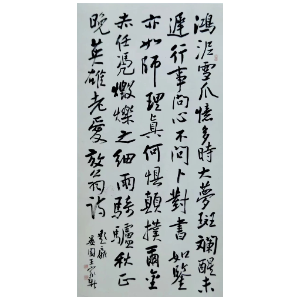 鴻泥雪爪憶多時大夢斑斕醒未
遲行事問心不問卜對書如鑒
亦如師理真何懼顛撲爾金
赤任憑燬爍之細雨騎驢秋正
晚英雄老愛放翁詩